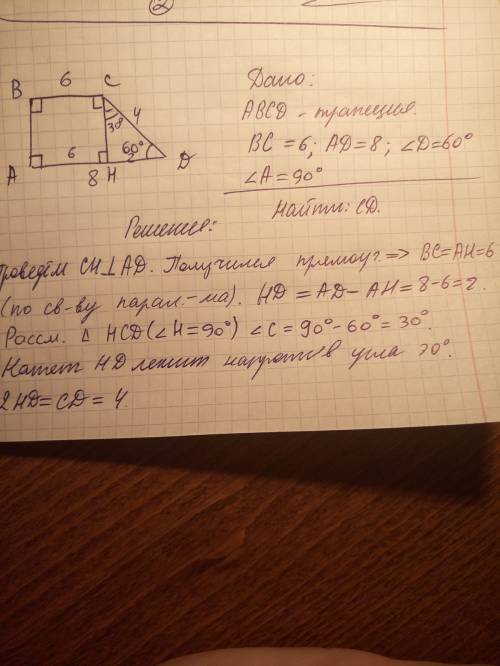 ②
6
B C
4
30°
6 60°
2
A 8 H D
Дано:
ABCD - трапеция.
BC = 6; AD = 8; ∠D = 60°
∠A = 90°
Найти: CD.
Решение:
Проведём CH⊥AD. Получился прямоуг. ⇒ BC=AH=6
(по св-ву парал.-ма). HD = AD - AH = 8-6=2.
Рассм. Δ HCD (∠H=90°) ∠C = 90°-60°=30°.
Катет HD лежит напротив угла 30°.
2HD=CD = 4.